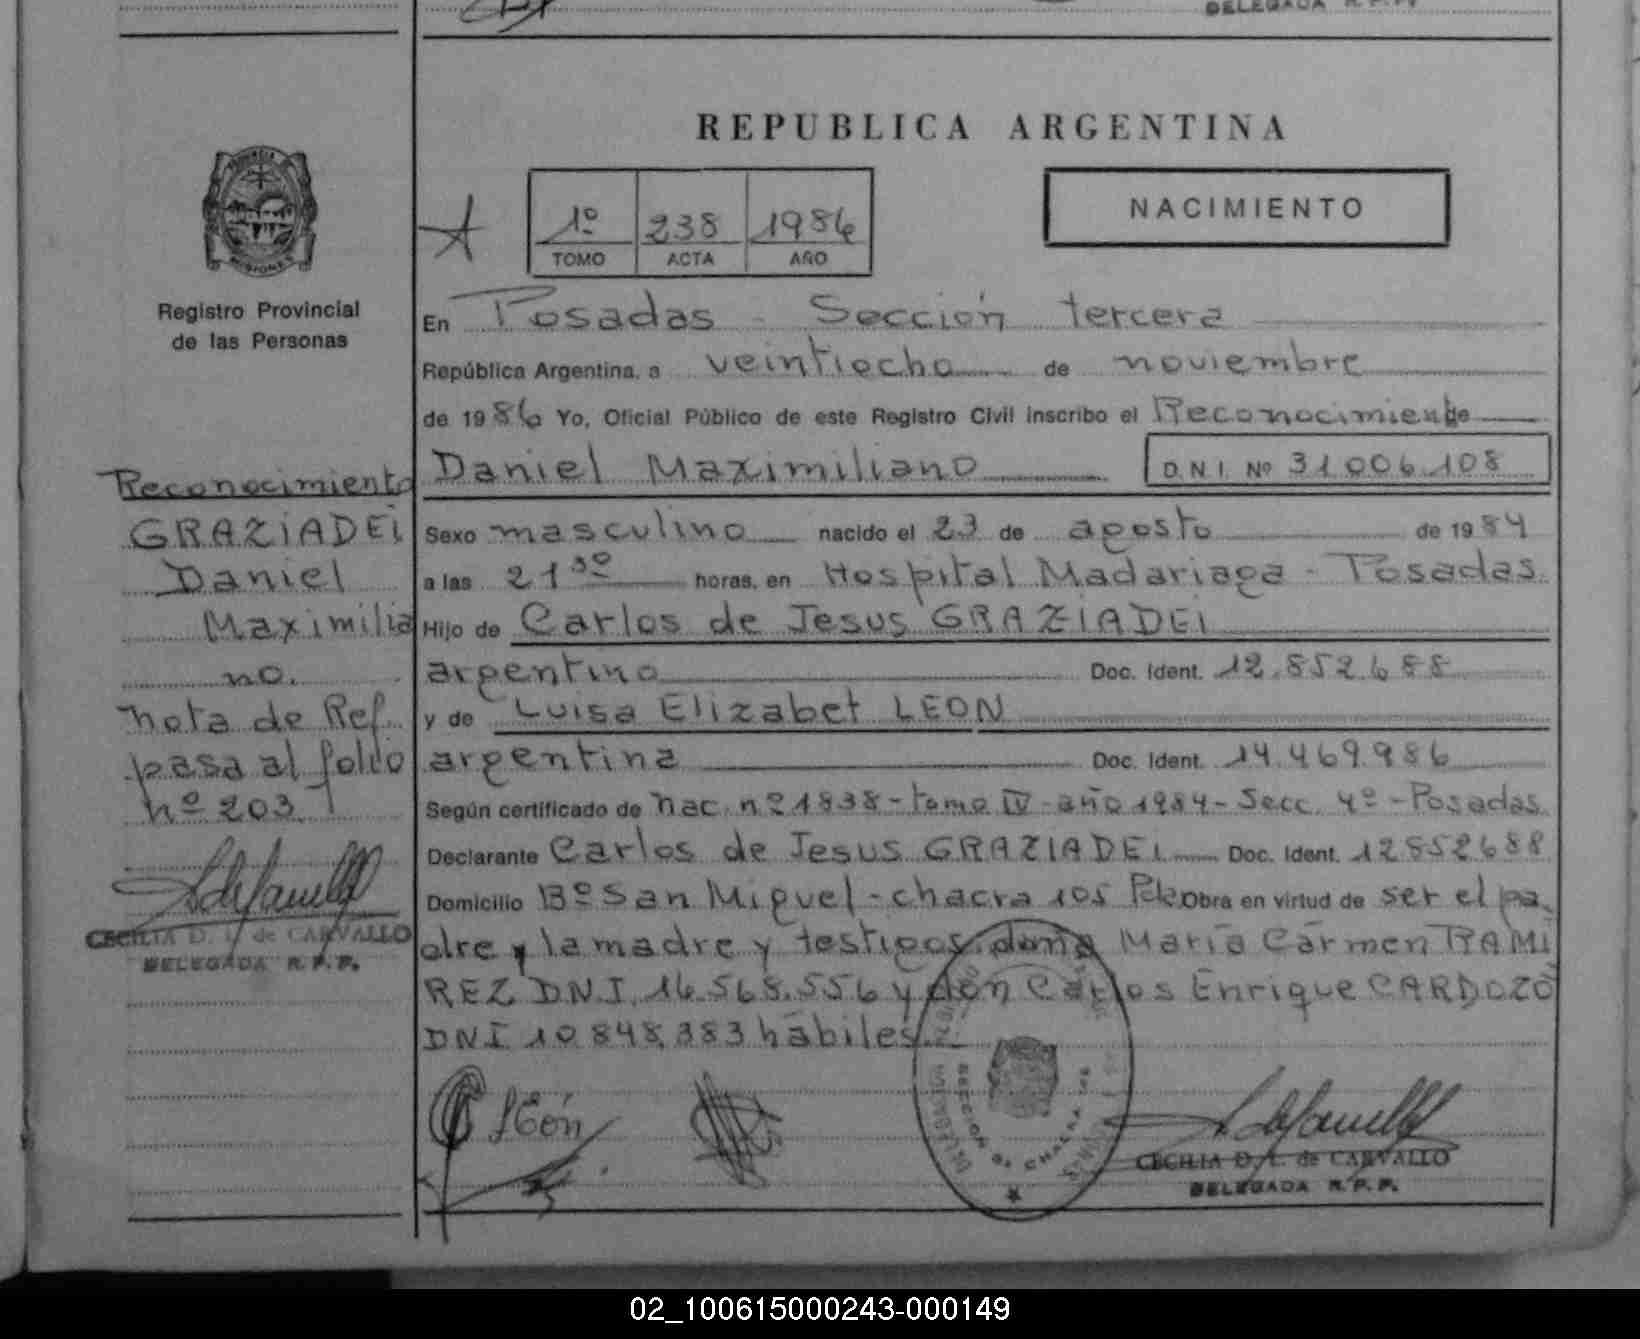 DELEGADA R.P.P.
REPUBLICA ARGENTINA
PROVINCIA DE
MISIONES
Registro Provincial
de las Personas
1º 238 1986
TOMO ACTA AÑO
NACIMIENTO
En Posadas - Sección tercera
República Argentina, a veintiocho de noviembre
de 1986 Yo, Oficial Público de este Registro Civil inscribo el Reconocimiento de
Daniel Maximiliano D.N.I. Nº 31.006.108
Sexo masculino nacido el 23 de agosto de 1984
a las 21 30 horas, en Hospital Madariaga - Posadas.
Hijo de Carlos de Jesus GRAZIADEI
argentino Doc. Ident. 12.852.688
y de Luisa Elizabet LEON
argentina Doc. Ident. 14.469.986
Según certificado de Nac. nº 1838 - tomo IV - año 1984 - Secc. 4º - Posadas.
Declarante Carlos de Jesus GRAZIADEI Doc. Ident. 12852688
Domicilio Bº San Miguel - chacra 105 Obra en virtud de ser el pa
dre y la madre y testigos doña María Cármen RAMI
REZ DNI. 16.568.556 y don Carlos Enrique CARDOZO
DNI 10.848.383 hábiles.
Reconocimiento
GRAZIADEI
Daniel
Maximilia
no.
nota de Ref.
pasa al folio
nº 203
CECILIA D. L. de CARVALLO
DELEGADA R.P.P.
León
SECCION 3ª CHACRA 105
CECILIA D. L. de CARVALLO
DELEGADA R.P.P.
02_100615000243-000149